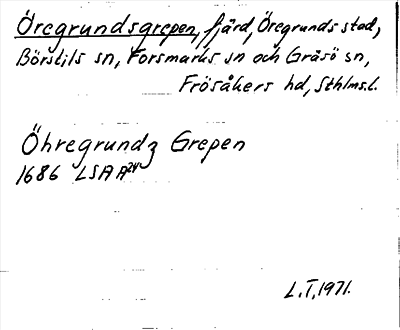 Öregrundsgrepen, fjärd, Öregrunds stad,
Börstils sn, Forsmarks sn och Gräsö sn,
Frösåkers hd, Sthlms.l.
Öhregrundz Grepen
1686 LSA A24
L.T, 1971.